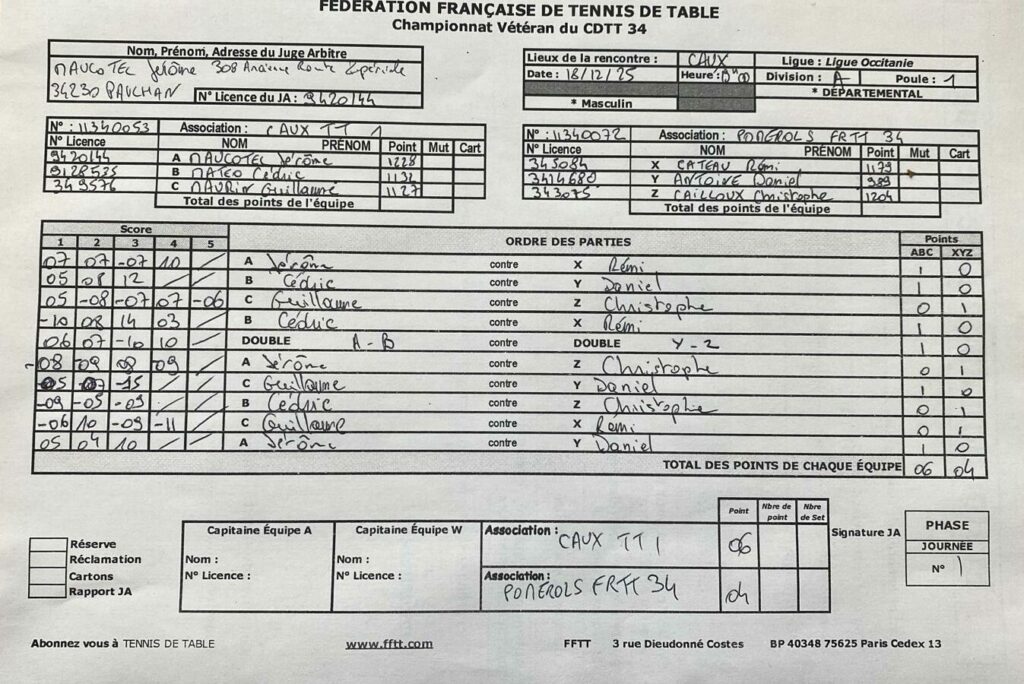 FÉDÉRATION FRANÇAISE DE TENNIS DE TABLE
Championnat Vétéran du CDTT 34
Nom, Prénom, Adresse du Juge Arbitre
NAUCOTEL Jérôme 308 Ancienne Route
34230 PAULHAN N° Licence du JA : 3420144
Lieux de la rencontre : CAUX Ligue : Ligue Occitanie
Date : 18/12/25 Heure : Division : A Poule : 1
* Masculin * DÉPARTEMENTAL
N° : 11340053 Association : CAUX TT 1
N° Licence NOM PRÉNOM Point Mut Cart
9420144 A NAUCOTEL Jérôme 1228
9128535 B MATEO Cédric 1132
349576 C MAURIN Guillaume 1127
Total des points de l'équipe
N° : 11340072 Association : POMEROLS FRTT 34
N° Licence NOM PRÉNOM Point Mut Cart
345084 X CATEAU Rémi 1179
3414680 Y ANTOINE Daniel 989
343075 Z CAILLOUX Christophe 1204
Total des points de l'équipe
Score ORDRE DES PARTIES Points
1 2 3 4 5 ABC XYZ
07 07 -07 10 / A Jérôme contre X Rémi 1 0
05 08 12 / / B Cédric contre Y Daniel 1 0
05 -08 -07 07 -06 C Guillaume contre Z Christophe 0 1
-10 08 14 03 / B Cédric contre X Rémi 1 0
06 07 -10 10 / DOUBLE A - B contre DOUBLE Y - Z 1 0
-08 -09 08 -09 / A Jérôme contre Z Christophe 0 1
05 07 15 / / C Guillaume contre Y Daniel 1 0
-09 -05 -09 / / B Cédric contre Z Christophe 0 1
-06 10 -09 -11 / C Guillaume contre X Rémi 0 1
05 04 10 / / A Jérôme contre Y Daniel 1 0
TOTAL DES POINTS DE CHAQUE ÉQUIPE 06 04
Réserve
Réclamation
Cartons
Rapport JA
Capitaine Équipe A Capitaine Équipe W
Nom : Nom :
N° Licence : N° Licence :
Point Nbre de point Nbre de Set
Association : CAUX TT 1 06
Association : POMEROLS FRTT 34 04
Signature JA
PHASE
JOURNÉE
N° 1
Abonnez vous à TENNIS DE TABLE www.fftt.com FFTT 3 rue Dieudonné Costes BP 40348 75625 Paris Cedex 13